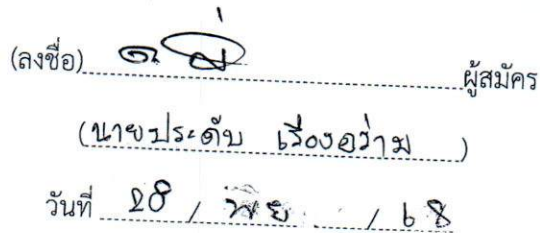 (ลงชื่อ) ผู้สมัคร
(นายประดับ เรืองอร่าม)
วันที่ 28 / พ.ย. / 68